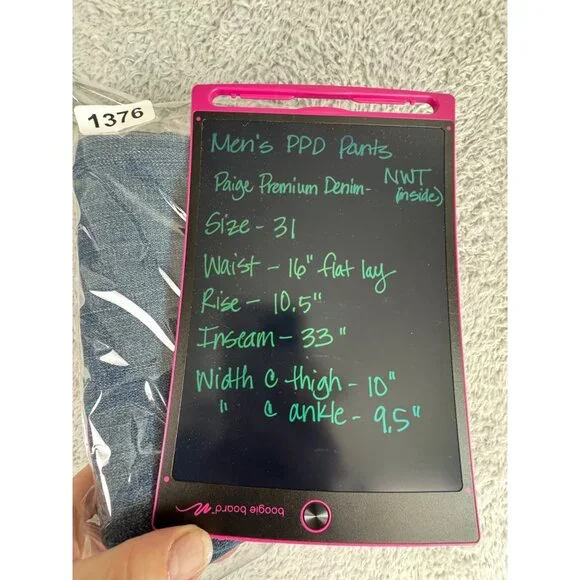 1376
Men's PPD Pants
Paige Premium Denim- NWT (inside)
Size - 31
Waist - 16" flat lay
Rise - 10.5"
Inseam - 33"
Width @ thigh - 10"
" @ ankle - 9.5"
boogie board™